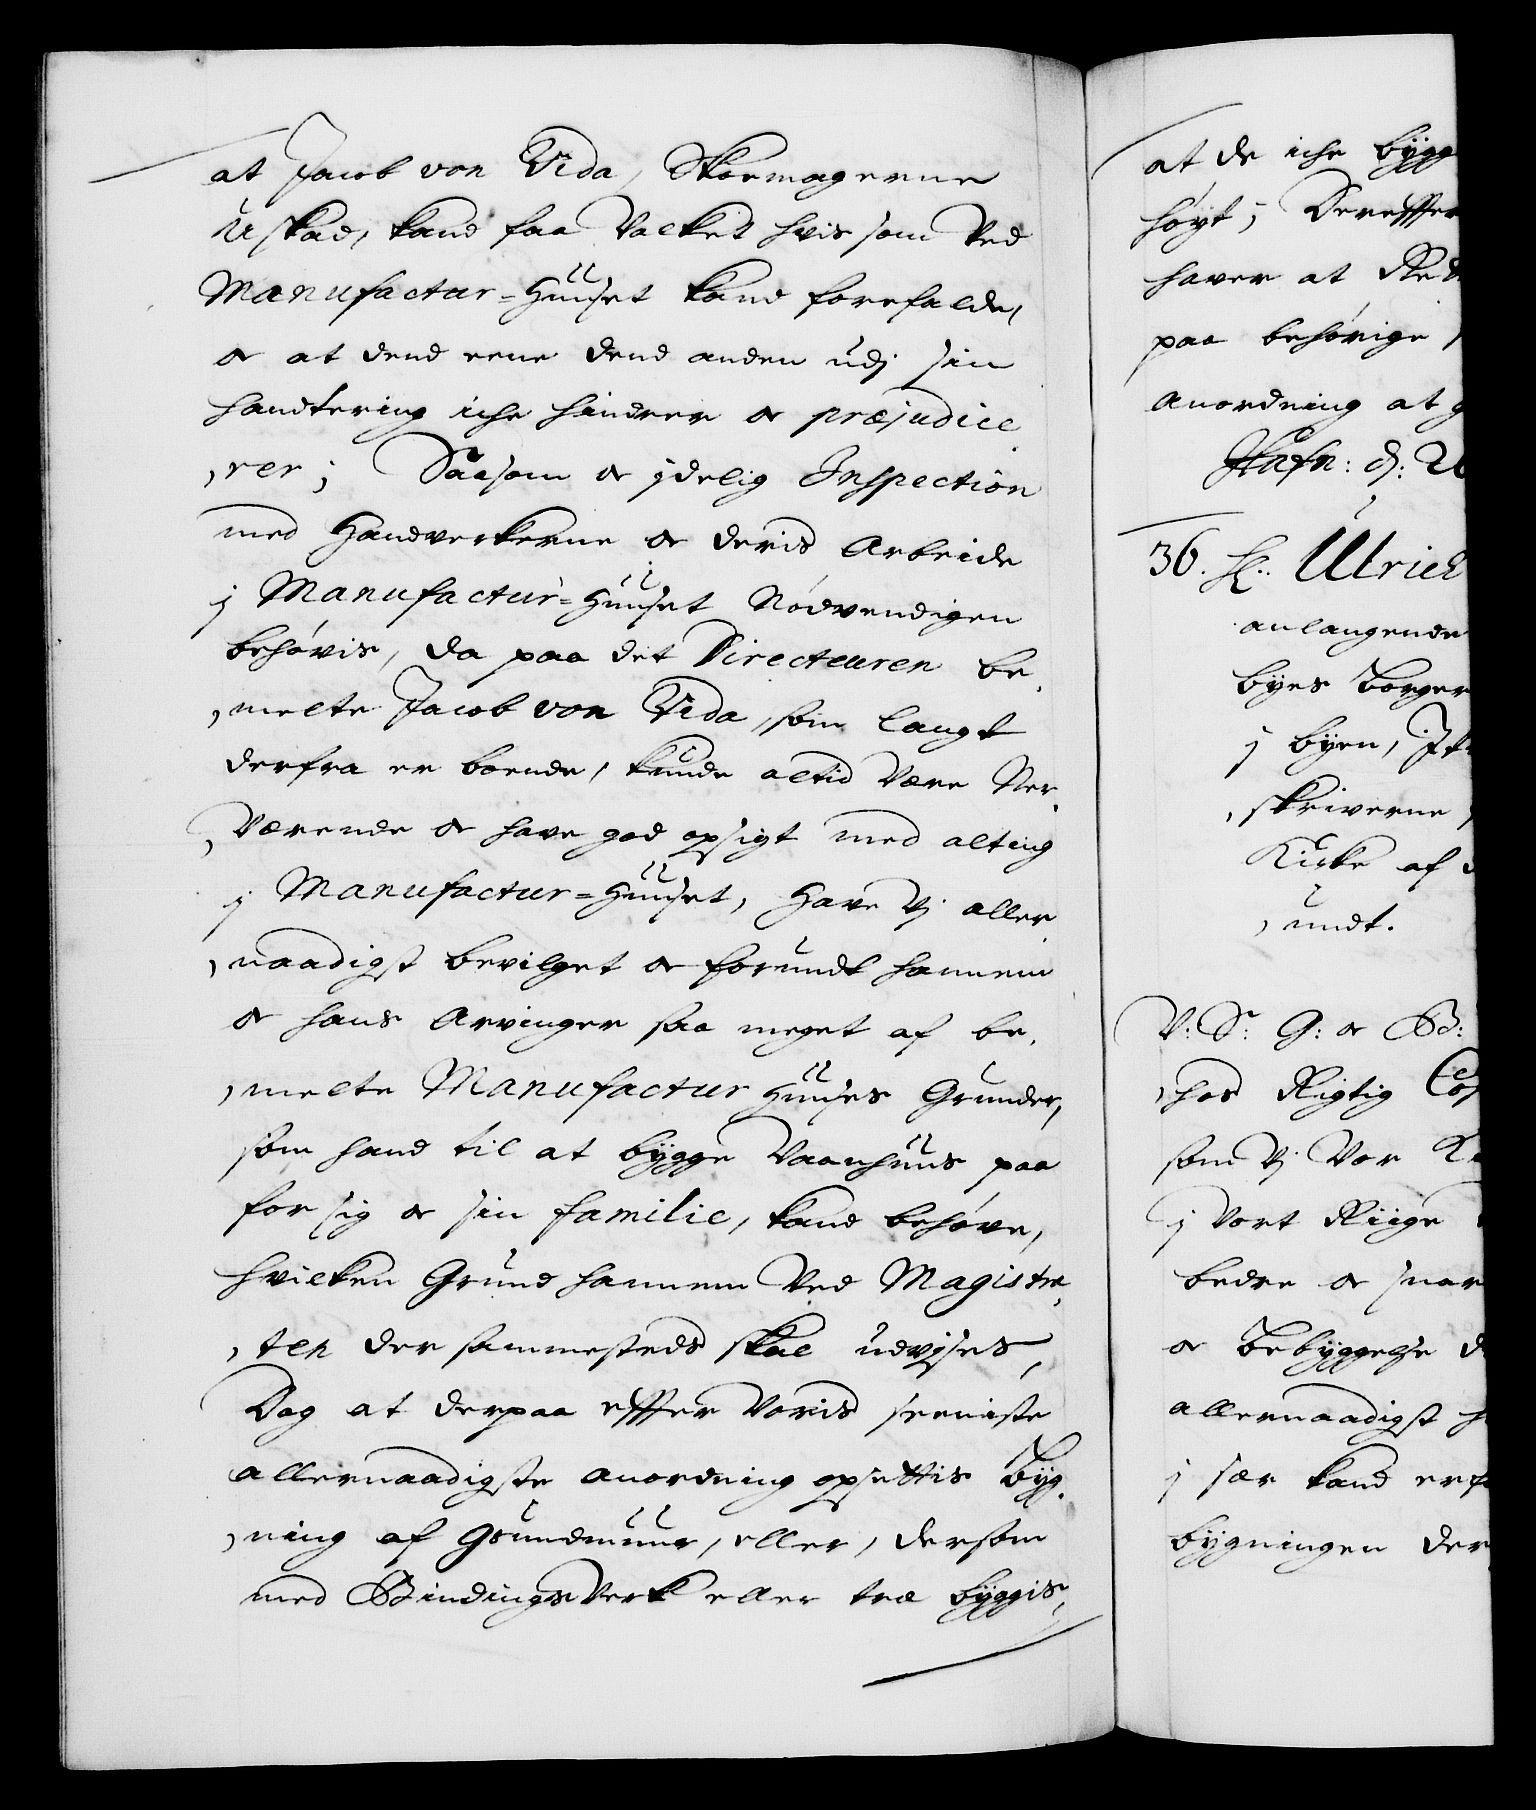 at Jacob von Vida, Skoemagerne
Uskad, kand faa Valket hvis som Ved
Manufactur-Huuset kand forefalde,
og at dend eene dend anden udj sin
handtering iche hindrer og præjudice
rer; Saasom og jdelig Inspection
med Handverkerne og deris Arbeide
j Manufactur-Huuset Nødvendigen
behøvis, da paa det Directeuren be
melte Jacob von Vida, som langt
derfra er boende, kunde altid Være Ner
Værende og have god opsigt med alting
j Manufactur-Huuset, Have Vj aller
naadigst bevilget og forundt hannem
og hans Arvinger saa meget af be
melte Manufactur Huuses Grunder,
som hand til at bygge Vaanhuus paa
for sig og sin familie, kand behøve,
hvilken Grund hannem Ved Magistra
ten der sammesteds skal udvjses,
Dog at derpaa effter Voris seeniste
allernaadigste anordning opsettis Byg
ning af Grundmuur, eller, dersom
med BindingsVerk eller træ byggis,
at de iche bygg
høyt; Dereffter
haver at
paa behørige
anordning at
Hafn: d: 2
36. Ulrich
anlangende
byes Borger
j byen,
skriverne
Kirke af
undt.
V: Sr: G: og B:
hos Rigtig
som Vj Vor
j Vort Riige
bedre og snar
og Bebyggelse
allernaadigst
j sær kand
bygningen der